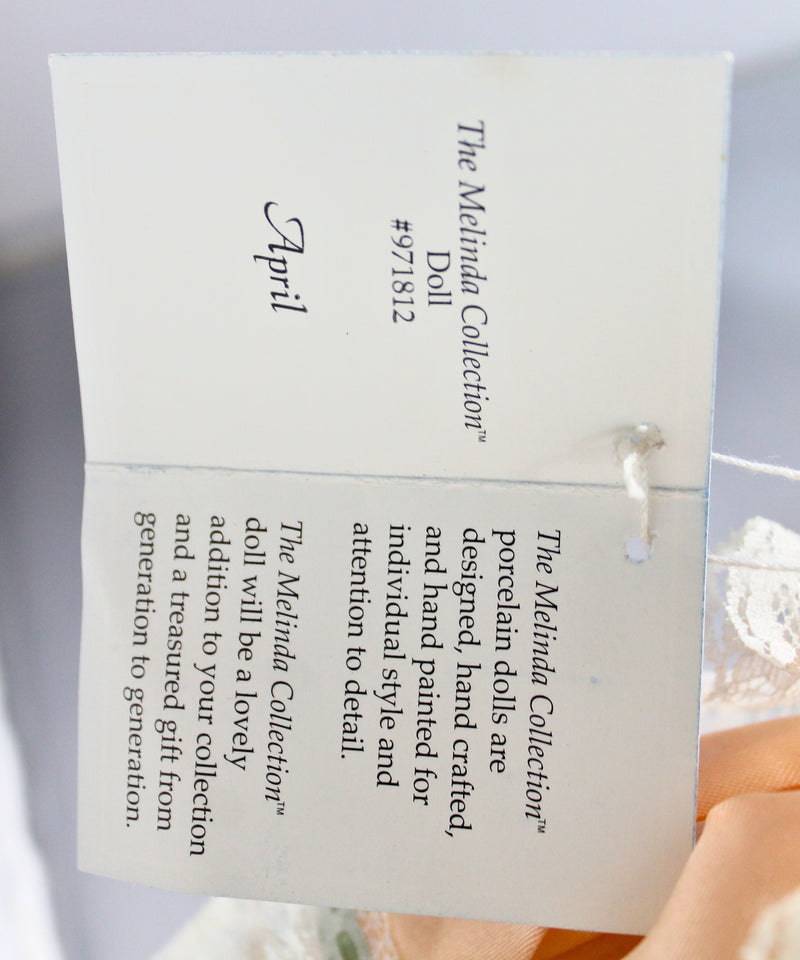 The Melinda Collection™
Doll
#971812
April
The Melinda Collection™
porcelain dolls are
designed, hand crafted,
and hand painted for
individual style and
attention to detail.
The Melinda Collection™
doll will be a lovely
addition to your collection
and a treasured gift from
generation to generation.